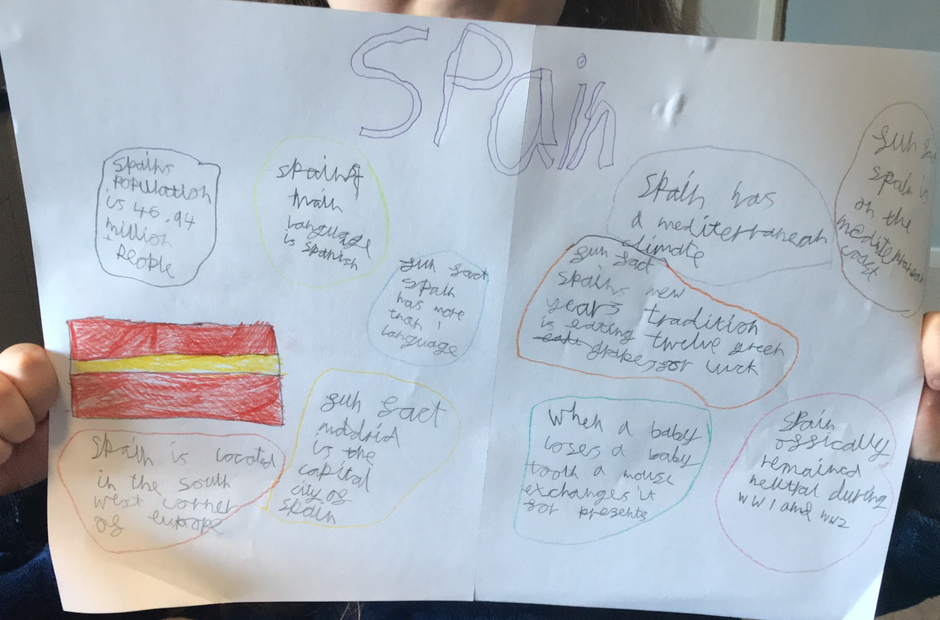 SPain
spains
population
is 46.94
million
people
spains
main
language
is spanish
fun fact
spain
has more
than 1
language
spain has
a mediterranean
climate
fun fact
spain is
on the
mediterranean
coast
fun fact
spains new
years tradition
is eating twelve green
grapes for luck
spain is located
in the south
west corner
of europe
fun fact
madrid
is the
capital
city of
spain
when a baby
loses a baby
tooth a mouse
exchanges it
for presents
spain
offically
remained
neutral during
ww1 and ww2